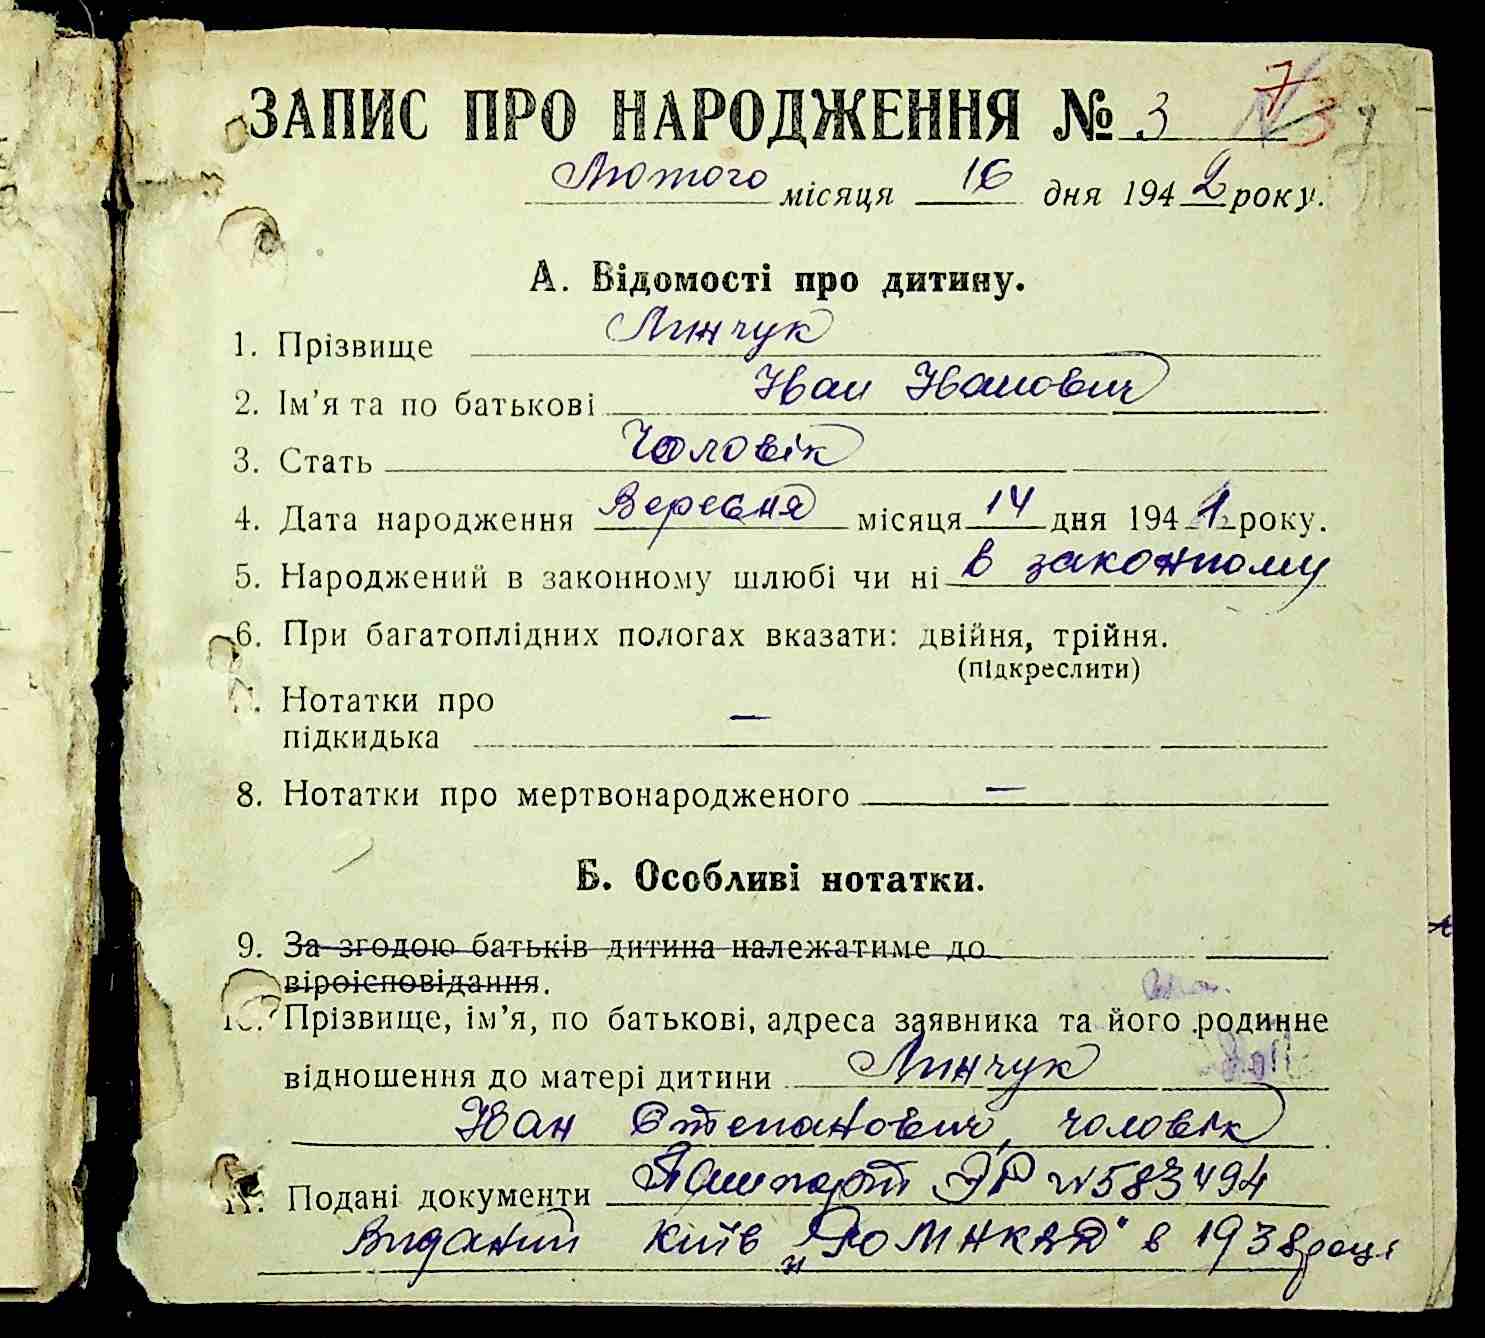 ЗАПИС ПРО НАРОДЖЕННЯ № 3
7
Лютого місяця 16 дня 1942 року.
А. Відомості про дитину.
1. Прізвище Линчук
2. Ім’я та по батькові Иван Иванович
3. Стать Чоловік
4. Дата народження Вересня місяця 14 дня 1941 року.
5. Народжений в законному шлюбі чи ні в законному
6. При багатоплідних пологах вказати: двійня, трійня.
(підкреслити)
7. Нотатки про
підкидька —
8. Нотатки про мертвонародженого —
Б. Особливі нотатки.
9. За згодою батьків дитина належатиме до
віроісповідання.
10. Прізвище, ім’я, по батькові, адреса заявника та його родинне
відношення до матері дитини Линчук
Иван Степанович, чоловік
11. Подані документи Пашпорт ЭР №583494
Виданий Київ „РОМНКВД" в 1938 році